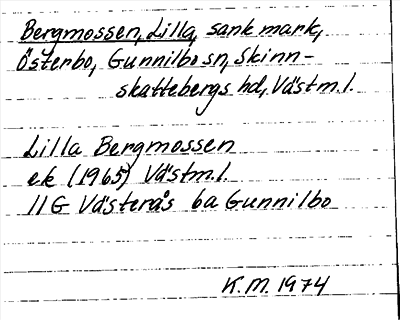 Bergmossen, Lilla, sank mark,
Österbo, Gunnilbo sn, Skinn-
skattebergs hd, Västm.l.
Lilla Bergmossen
ek (1965) Västm.l.
11G Västerås 6a Gunnilbo
K.M. 1974